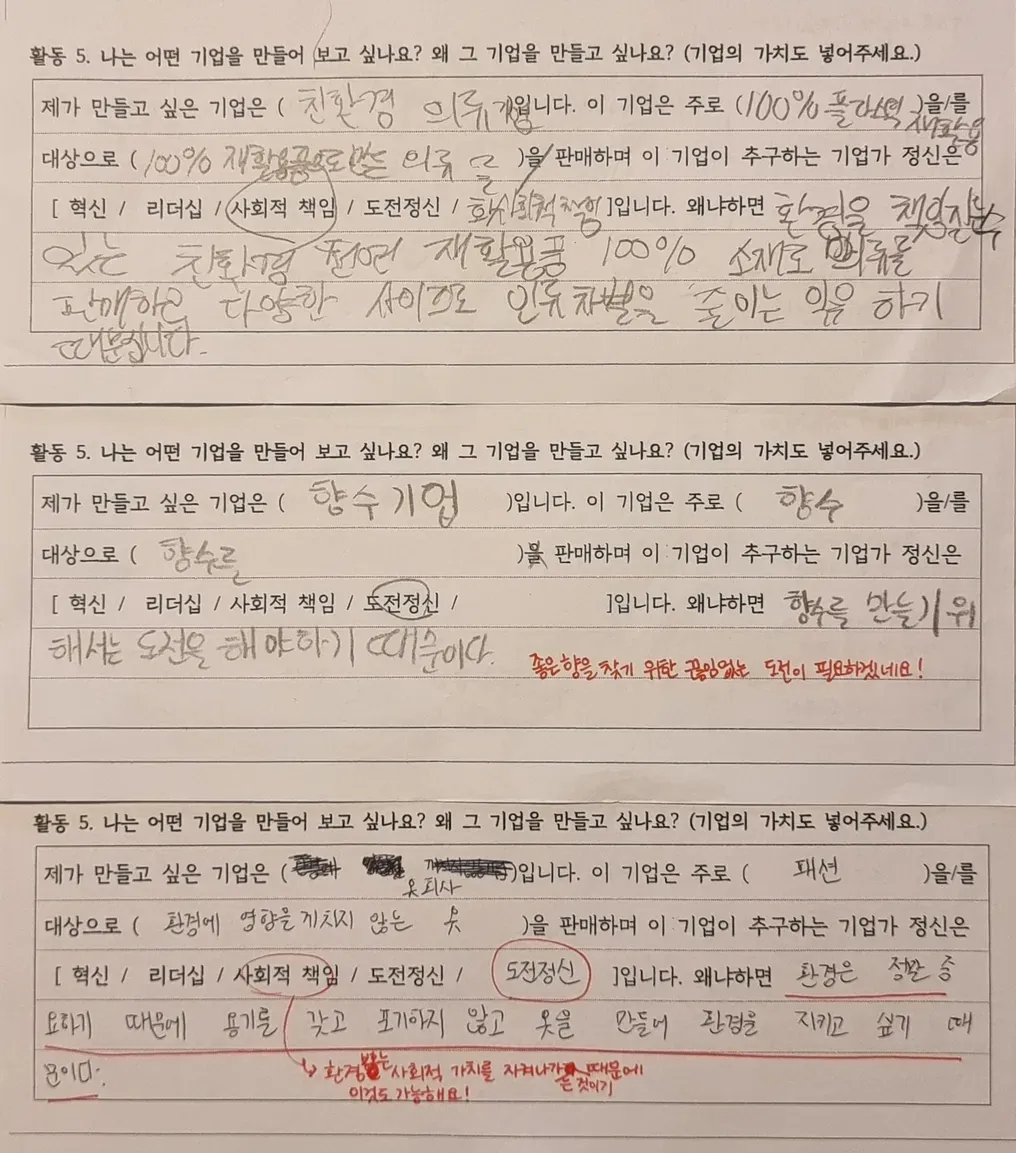 활동 5. 나는 어떤 기업을 만들어 보고 싶나요? 왜 그 기업을 만들고 싶나요? (기업의 가치도 넣어주세요.)
제가 만들고 싶은 기업은 ( 친환경 의류기업입니다. 이 기업은 주로 (100% 플라스틱 재활용 )을/를
대상으로 ( 100% 재활용품으로 만든 의류 를 )을 판매하며 이 기업이 추구하는 기업가 정신은
[ 혁신 / 리더십 / 사회적 책임 / 도전정신 / 사회적 책임 ]입니다. 왜냐하면 환경을 책임질 수
있는 친환경 재활용품 100% 소재로 의류를
판매하고 다양한 사이즈로 인류차별을 줄이는 일을 하기
때문입니다.
활동 5. 나는 어떤 기업을 만들어 보고 싶나요? 왜 그 기업을 만들고 싶나요? (기업의 가치도 넣어주세요.)
제가 만들고 싶은 기업은 ( 향수기업 )입니다. 이 기업은 주로 ( 향수 )을/를
대상으로 ( 향수를 )을 판매하며 이 기업이 추구하는 기업가 정신은
[ 혁신 / 리더십 / 사회적 책임 / 도전정신 / ]입니다. 왜냐하면 향수를 만들기 위
해서는 도전을 해야하기 때문이다.
좋은향을 찾기 위한 끊임없는 도전이 필요하겠네요!
활동 5. 나는 어떤 기업을 만들어 보고 싶나요? 왜 그 기업을 만들고 싶나요? (기업의 가치도 넣어주세요.)
제가 만들고 싶은 기업은 ( 옷 회사 )입니다. 이 기업은 주로 ( 패션 )을/를
대상으로 ( 환경에 영향을 끼치지 않는 옷 )을 판매하며 이 기업이 추구하는 기업가 정신은
[ 혁신 / 리더십 / 사회적 책임 / 도전정신 / 도전정신 ]입니다. 왜냐하면 환경은 정말 중
요하기 때문에 용기를 갖고 포기하지 않고 옷을 만들어 환경을 지키고 싶기 때
문이다.
↳ 환경 사회적 가치를 지켜나가는 것이기 때문에
이것도 가능해요!